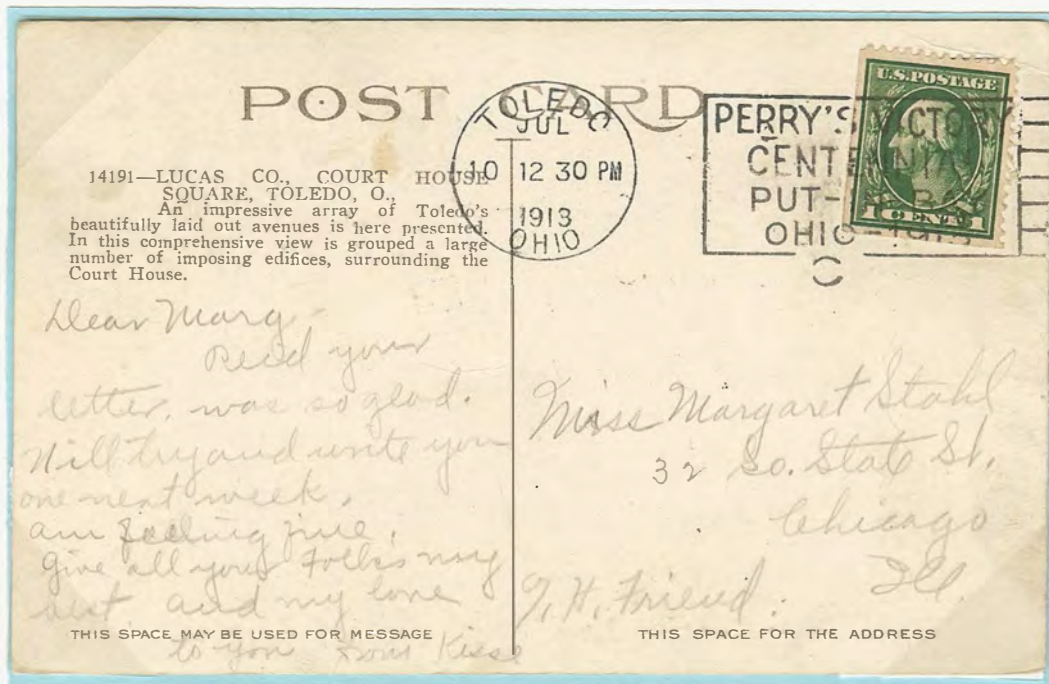 POST CARD
TOLEDO
JUL
10 12 30 PM
1913
OHIO
PERRY'S VICTORY
CENTENNIAL
PUT-IN-BAY
OHIO-1913
U.S.POSTAGE
1 CENT 1
14191—LUCAS CO., COURT HOUSE
SQUARE, TOLEDO, O.,
An impressive array of Toledo's
beautifully laid out avenues is here presented.
In this comprehensive view is grouped a large
number of imposing edifices, surrounding the
Court House.
Dear Marg
Recd your
letter, was so glad.
Will try and write you
one next week.
am feeling fine.
Give all your Folks my
best and my love
to you from
THIS SPACE MAY BE USED FOR MESSAGE
Miss Margaret Stahl
32 So. State St.
Chicago
Ill.
H. Friend.
THIS SPACE FOR THE ADDRESS